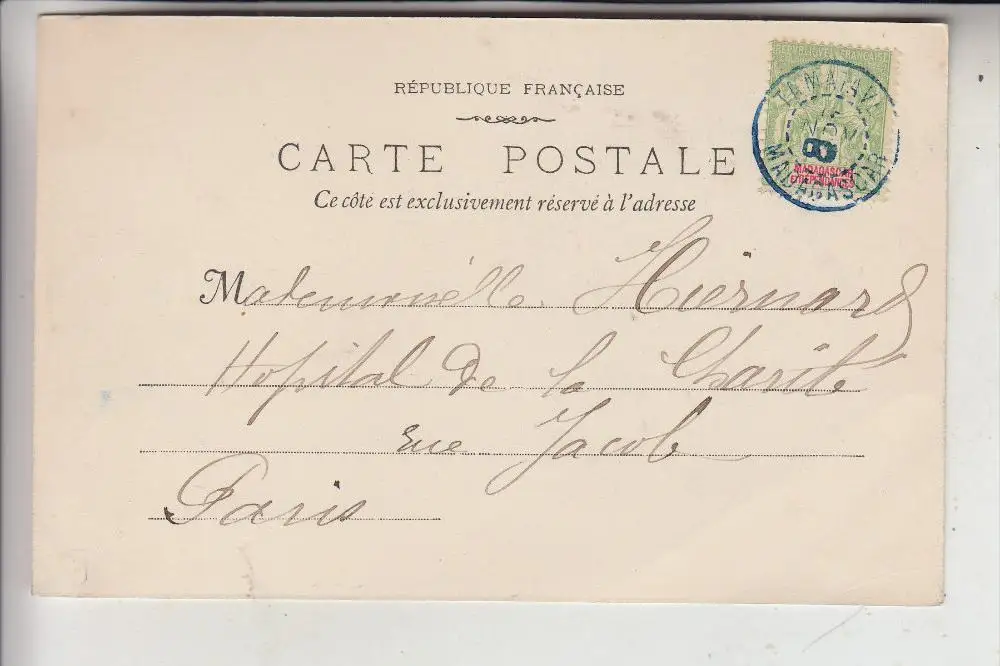 RÉPUBLIQUE FRANÇAISE
CARTE POSTALE
Ce côté est exclusivement réservé à l'adresse
RÉPUBLIQUE FRANÇAISE
TAMATAVE
15
NOV
MADAGASCAR
MADAGASCAR
ET DÉPENDANCES
Mademoiselle Hiernard
Hopital de la Charité
rue Jacob
Paris